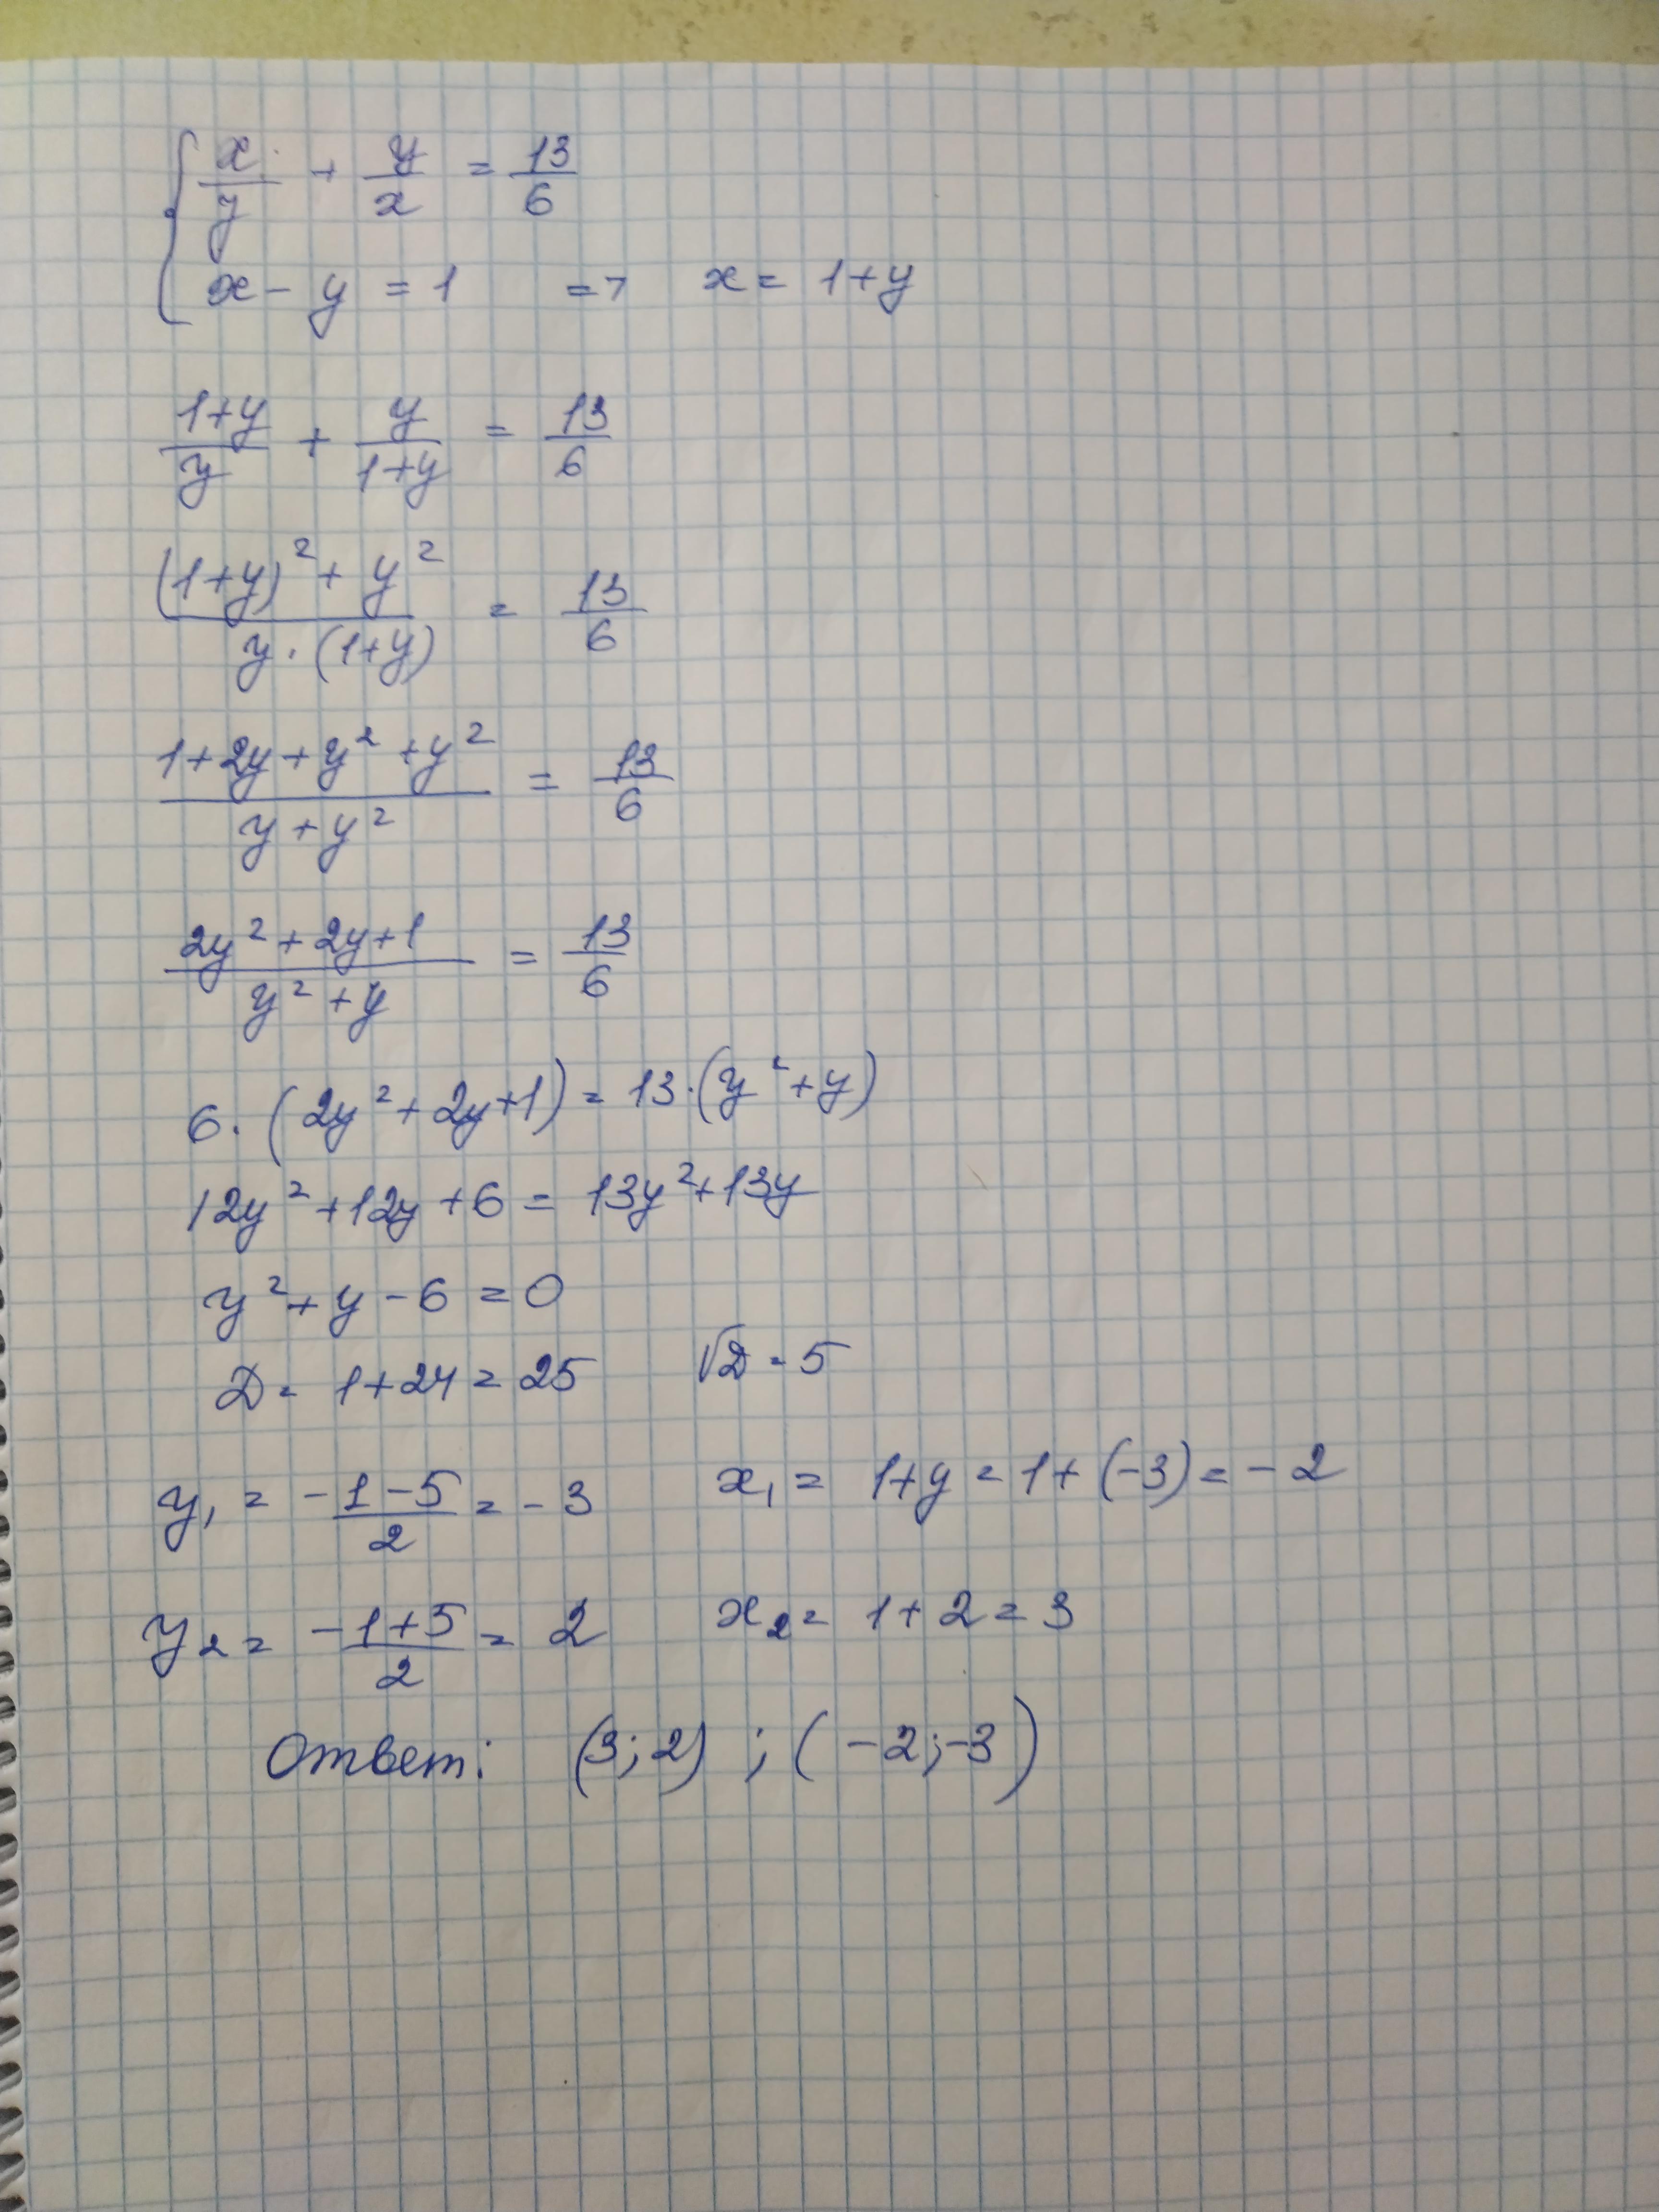 { x/y + y/x = 13/6
x - y = 1 => x = 1+y
(1+y)/y + y/(1+y) = 13/6
((1+y)² + y²)/(y·(1+y)) = 13/6
(1+2y+y²+y²)/(y+y²) = 13/6
(2y²+2y+1)/(y²+y) = 13/6
6·(2y²+2y+1) = 13·(y²+y)
12y²+12y+6 = 13y²+13y
y²+y-6=0
D = 1+24=25 √D = 5
y₁ = (-1-5)/2 = -3 x₁ = 1+y = 1+(-3) = -2
y₂ = (-1+5)/2 = 2 x₂ = 1+2=3
Ответ: (3;2) ; (-2;-3)